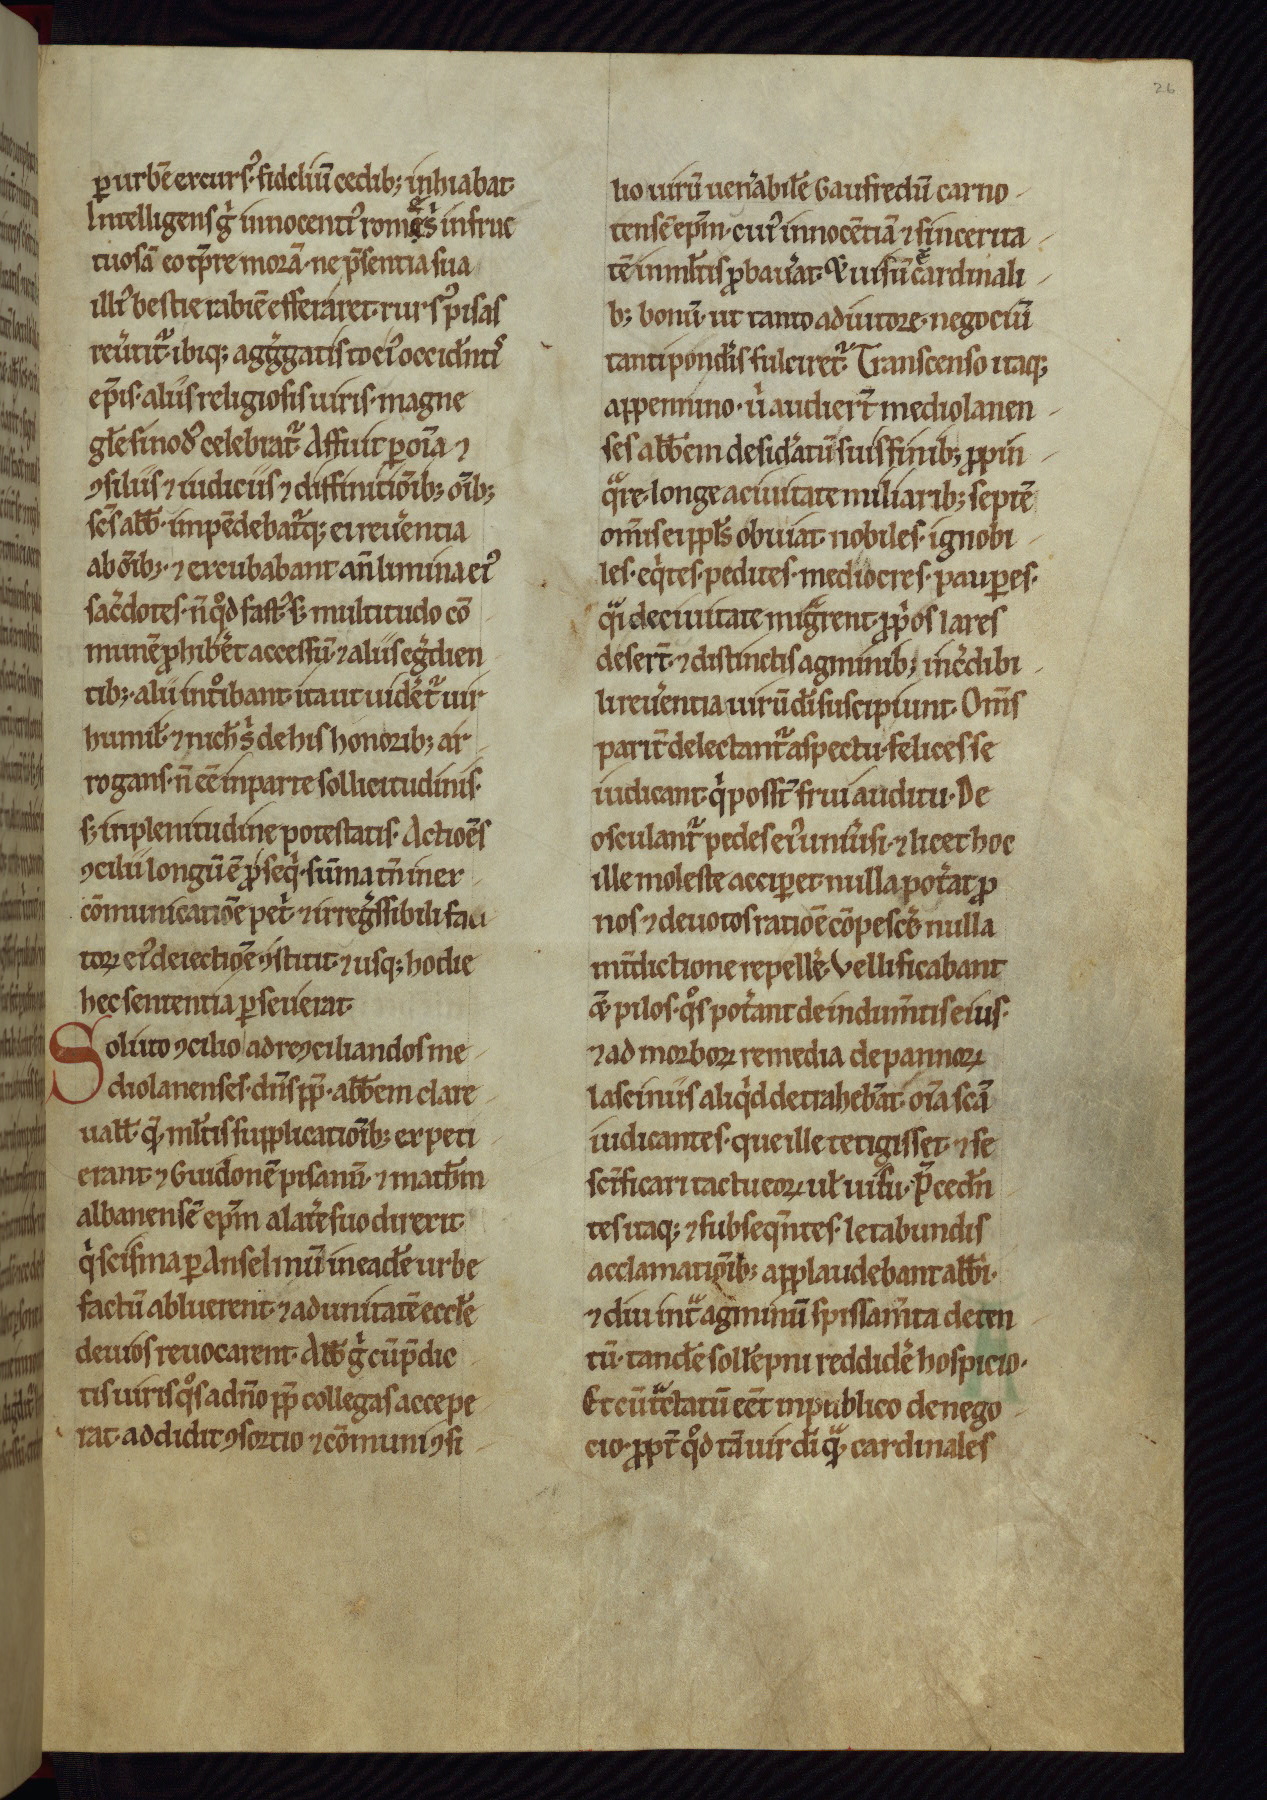 26
ꝑ urbē excurs᷒· fideliū cedib; inhiabat·
Intelligens g̊ innocenti᷒ romę ꝗ̊s̊ infruc
tuosā eo tp̄re morā· ne p̄sentia sua
illi᷒ bestie rabiē efferaret· rurs᷒ pisas
reūtit᷑· ibiq; agg̊gatis toci᷒ occidēnt᷒
ep̄is· aliis religiosis uiris· magne
gl̄e sinod᷒ celebrat᷑· Affuit ꝑ oīa ⁊
ꝯsiliis ⁊ iudiciis ⁊ diffinitiōib; oīb;
sc̄s abb̄· inpēdebat᷑q; ei reu̓entia
ab oīb;· ⁊ excubabant an̄ limina ei᷒
sac̓dotes· n̄ qd̊ fast᷒ s; multitudo cō
munē ꝓhib̓et accessū· ⁊ aliis eg̊dien
tib;· alii int̊ibant· ita ut uid̓et᷑ uir
humil̄· ⁊ nich̄ s̊ de his honorib; ar
rogans· n̄ eē in parte sollicitudinis·
s; in plenitudine potestatis· Actiōes
ꝯcilii longū ē ꝓseq̊· sūma tn̄ in er
cōmunicatiōe pet᷒· ⁊ irreg̊ssibili fau
toꝝ ei᷒ deiectiōe ꝯstitit· ⁊ usq; hodie
hec sententia ꝑseuerat·
Soluto ꝯcilio ad reꝯciliandos me
diolanenses· dn̄s pp̄· abb̄em clare
uall̄· q̄· ml̄tis supplicatiōib; expeti
erant· ⁊ Guidonē pisanū· ⁊ math̄m
albanensē ep̄m a lat̓e suo direxit·
q̊ scisma ꝑ Anselmū in ead̄e urbe
factū abluerent· ⁊ ad unitatē eccl̄e
deuios reuocarent· Abb̄ g̊ cū p̄dic
tis uiris q̊s a dn̄o pp̄ collegas accepe
rat· addidit ꝯsortio ⁊ cōmuni ꝯsi
lio uirū uen̓abil̄e Gaufredū carno
tensē ep̄m· cui᷒ innocētiā ⁊ sincerita
tē in ml̄tis ꝓbau̓at· ⁊ uisū ē cardinali
b; bonū· ut tanto adiutore· negociū
tanti pond̓is fulciret᷑· Transcenso itaq;
appennino· u̇ audiert̄ mediolanen
ses abb̄em desid̓atū suis finib; ꝓpin
qͣre· longe a ciuitate miliarib; septē
om̄is ei ppl̄s obuiat· nobiles· ignobi
les· eq̊tes· pedites· mediocres· pauꝑes·
qͣi de ciuitate mig̊rent· ꝓp̊os lares
desert̄· ⁊ distinctis agminib; inc̓dibi
li reu̓entia uirū dī suscipiunt· Om̄s
parit̄ delectant᷑ aspectu· felices se
iudicant q̊ poss̄t frui auditu· De
osculant᷑ pedes ei᷒ uniu̓si· ⁊ licet hoc
ille moleste acciꝑet· nulla pot̓at ꝓ
nos ⁊ deuotos ratiōe cōpesc̓e· nulla
int̄dictione repell̓e· Vellificabant
⁊ pilos· q̊s pot̓ant de indum̄tis eius·
⁊ ad morboꝝ remedia de pannoꝝ
lasciniis aliq̊d detrahebāt· oīa scā
iudicantes· que ille tetigisset· ⁊ se
sc̄ificari tactu eoꝝ ul̄ uisu· P̄cedēn
tes itaq; ⁊ subseqn̄tes· letabundis
acclamatiōib; applaudebant abb̄i·
⁊ diu int̄ agminū spissam̄ta deten
tū· tand̄e soll̄epni reddid̓e hospicio·
Et cū t͛ctatū eēt in publico de nego
cio· ꝓpt̄ qd̊ tā uir dī qͣ cardinales